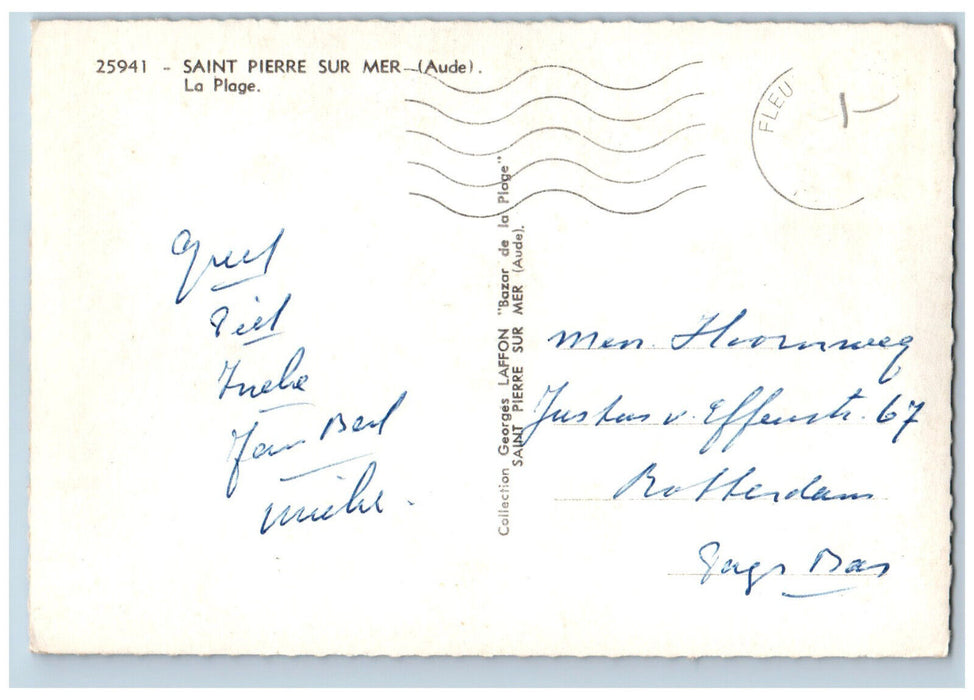 25941 - SAINT PIERRE SUR MER (Aude).
La Plage.
FLEU
Greet
Piet
Ineke
Jan Bert
Mieke.
Collection Georges LAFFON "Bazar de la Plage"
SAINT PIERRE SUR MER (Aude).
Men. Hoornweg
Justus v. Effenstr. 67
Rotterdam
Pays Bas